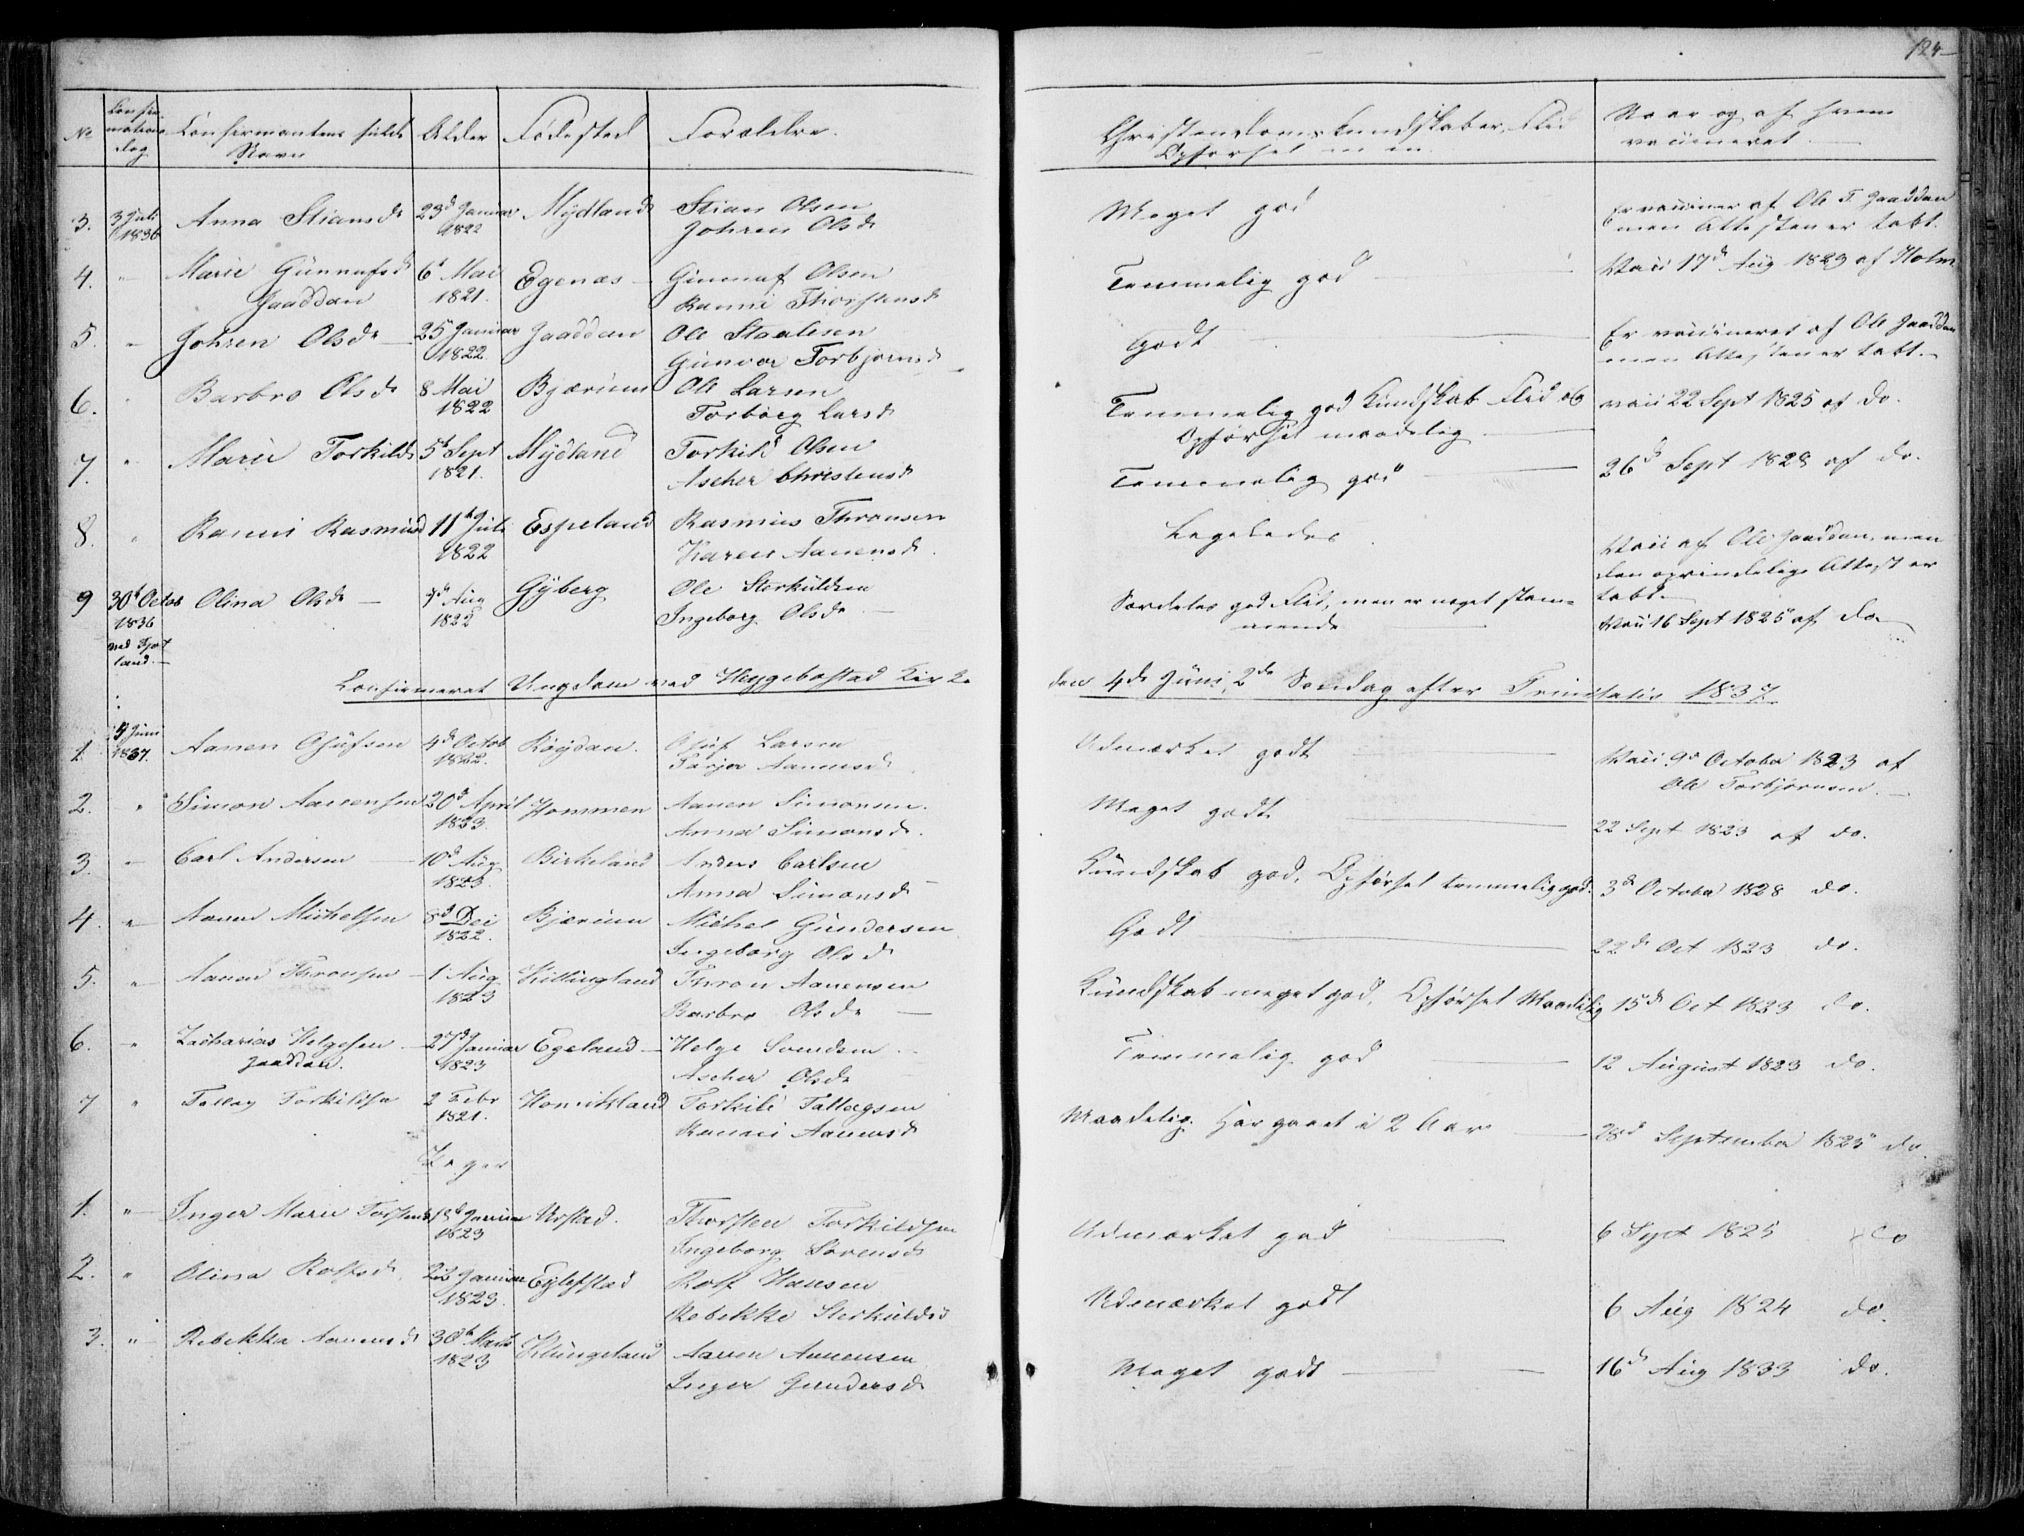 124
No
Confir-
mations
dag
Confirmantens fulde
Navn
Alder
Fødested
Forældre.
Christendoms Kundskaber, Flid
Opførsel m m.
Naar og af hvem
vaccineret.
3. 3 Juli 1836 Anna Stiansdr 23d Januar 1822 Mydland Stian Olsen
Johren Olsdr
Meget god
Er vacciner af Ole T. Gaaddan
men Attesten er tabt.
4. " Marie Gunnufsdr 6t Mai 1821. Egenæs Gunnuf Olsen
Gaaddan Ranni Thorstensdr
Temmelig god
Vacc 17de Aug 1829 af Holm
5. " Johren Olsdr 25 Januar 1822. Gaaddan Ole Staalesen
Gunvor Torbjørnsd
Godt
Er vaccineret af Ole Gaaddan
men Attesten er tabt.
6. " Barbro Olsdr 8 Mai 1822 Bjærum Ole Larsen
Torborg Larsdr
Temmelig god Kundskab Flid og
Opførsel maadelig.
vacc 22 Sept 1825 af do.
7. " Marie Torkilds 5t Sept 1821. Mydland Torkild Olsen
Ascher Christensdr
Temmelig god
26de Sept 1828 af do.
8. " Ranni Rasmusd 11te Juli 1822 Espeland Rasmus Thronsen
Karen Aanensdr.
Ligeledes
Vacc af Ole Gaaddan, men
den oprindelige Attest er
tabt.
9 30t Octob 1836 ved Fjot land. Olina Olsdr 7de Aug 1822 Gyberg Ole Storkuldsen
Ingeborg Olsdr.
Særdeles god Flid, men er noget stam-
mende
Vacc 16 Sept 1825 af do
Confirmeret Ungdom ved Heggebostad Kirke den 4de Juni, 2de Søndag efter Trinitatis 1837.
1. 4 Juni 1837. Aanen Olufsen 4de Octob 1822. Røydan. Oluf Larsen
Tarjer Aanensdr
Udmærket godt
Vacc 9de October 1823 af
Ole Torbjørnsen.
2. " Simon Aanensen 20de April 1823. Hommen Aanen Simonsen.
Anna Simonsdr.
Meget godt
22 Sept 1823 af do.
3. " Carl Andersen 10de Aug 1823. Birkeland Anders Carlsen
Anna Simonsdr
Kundskab god, Opførsel temmelig god.
3de October 1828 do.
4. " Aanen Michelsen 8de Dec 1822. Bjærum Michel Gundersen
Ingeborg Olsdr
Godt
22de Oct 1823 do.
5. " Aanen Thronsen 1 Aug 1823 Killingland Thron Aanensen
Barbro Olsdr
Kundskab meget god, Opførsel Maadelig
15de Oct 1823 do.
6. " Zacharias Helgesen 27de Januar 1823 Egeland Helge Svendsen
Gaaddan. Ascher Olsdr
Temmelig god
12 August 1823 do.
7 " Tallag Torkildsen 2 Febr 1821. Torkild Tallagsen
Ranni Aanensdr
Maadelig. Har gaaet i 2 Aar
28de September 1825 do.
Piger
1. " Inger Marie Torstensd 18de Januar 1823 Urstad. Thorsten Torkildsen
Ingeborg Sørensdr
Udmærket god
6 Sept 1825 do
2. " Olina Rolfsdr. 22 Januar 1823. Eglefstad Rolf Hansen
Rebekke Sterkuldsd
Udmærket godt
6 Aug 1824 do.
3. " Rebekka Aanensdr 30te Marts 1823 Klungeland Aanen Aanensen
Inger Gundersdr
Meget godt
16de Aug 1833 do.